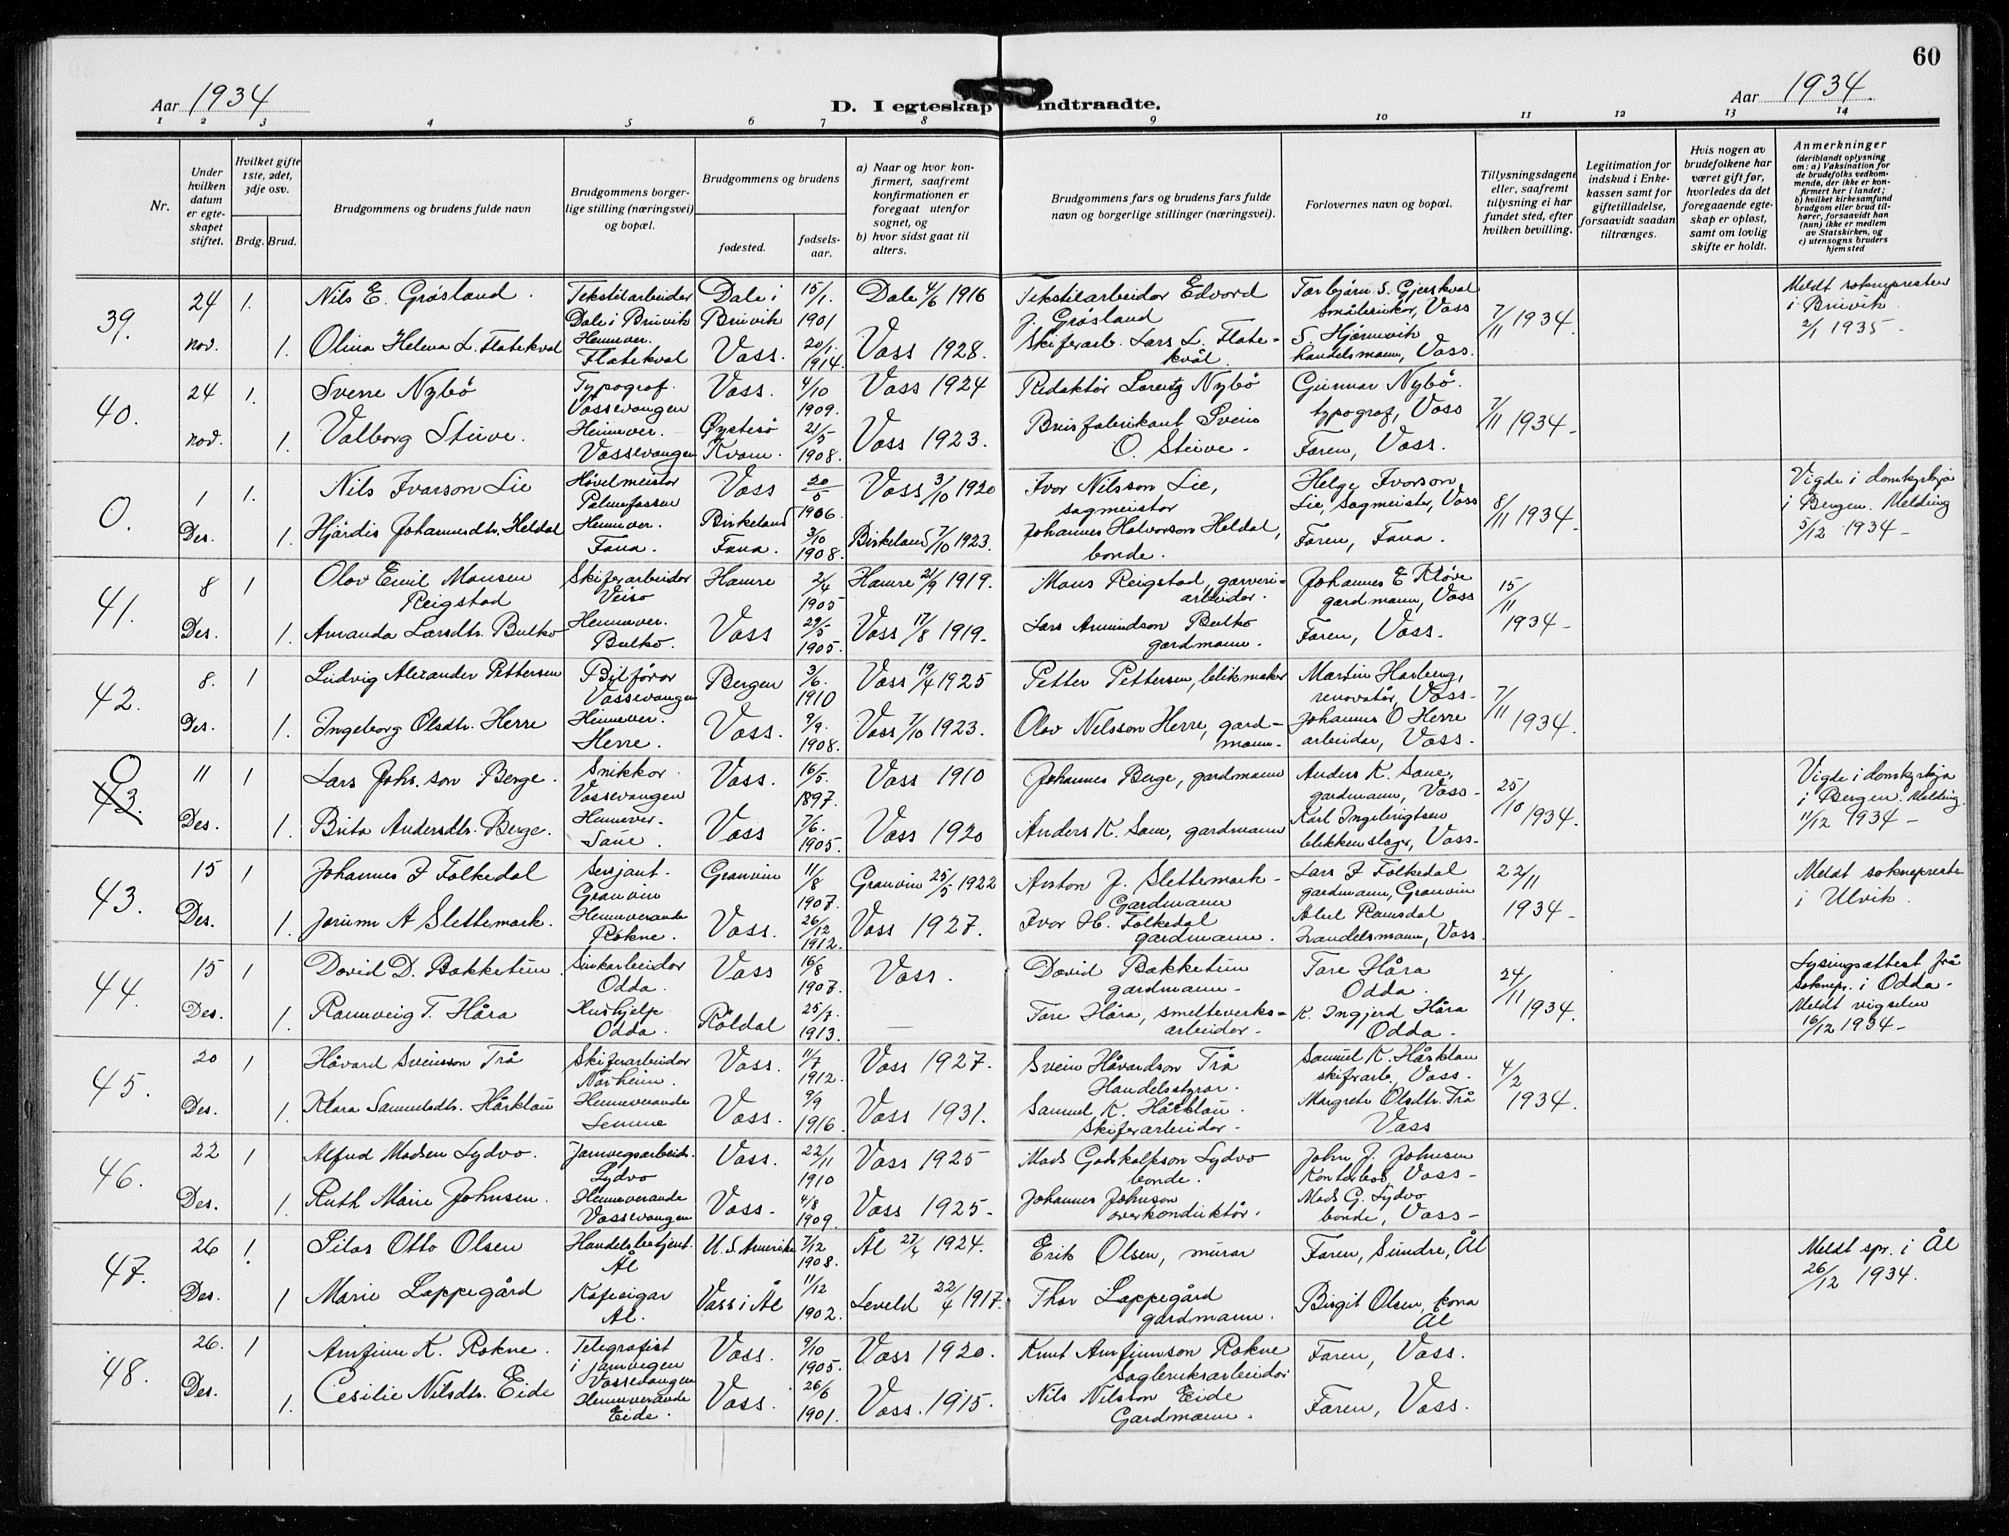 60
Aar 1934
D. I egteskap indtraadte.
Aar 1934.
1 2 3 4 5 6 7 8 9 10 11 12 13 14
Nr.
Under hvilken datum er egteskapet stiftet.
Hvilket gifte 1ste, 2det, 3dje osv.
Brdg. Brud.
Brudgommens og brudens fulde navn
Brudgommens borgerlige stilling (næringsvei) og bopæl.
Brudgommens og brudens
fødested.
fødselsaar.
a) Naar og hvor konfirmert, saafremt konfirmationen er foregaat utenfor sognet, og
b) hvor sidst gaat til alters.
Brudgommens fars og brudens fars fulde navn og borgerlige stillinger (næringsvei).
Forlovernes navn og bopæl.
Tillysningsdagene eller, saafremt tillysning ei har fundet sted, efter hvilken bevilling.
Legitimation for indskud i Enkekassen samt for giftetilladelse, forsaavidt saadan tiltrænges.
Hvis nogen av brudefolkene har været gift før, hvorledes da det foregaaende egteskap er opløst, samt om lovlig skifte er holdt.
Anmerkninger
(deriblandt oplysning om: a) Vaksination for de brudefolks vedkommende, der ikke er konfirmert her i landet; b) hvilket kirkesamfund brudgom eller brud tilhører, forsaavidt han (hun) ikke er medlem av Statskirken, og c) utensogns bruders hjemsted
39. 24 1. Nils E. Grøsland. Tekstilarbeider Dale i Bruvik Dale i Bruvik 15/1. 1901 Dale 4/6 1916 Tekstilarbeidar Edvard J. Grøsland Torbjørn S. Gjerskval smålersnikar, Voss 7/11 1934. Meldt soknepresten i Bruvik 2/1 1935-
nov. 1. Olina Helena L. Flatekval Heimever. Flatekval Voss. 20/1. 1914. Voss 1928. Skiferarb. Lars L. Flatekvål. S. Hjørnevik handelsmann, Voss.
40. 24 1. Sverre Nybø Typograf. Vossevangen Voss. 4/10 1909. Voss 1924 Redaktør Lorentz Nybø Gunnar Nybø. typograf, Voss 7/11 1934-
nov. 1. Valborg Stuve. Heimever. Vossevangen Øystesø Kvam. 21/5 1908. Voss 1923. Brusfabrikant Svein O. Stuve. Faren, Voss.
0. 1 1. Nils Ivarson Lie Høvelmeistar Palmafossen Voss 20/5 1906 Voss 3/10 1920 Ivar Nilsson Lie, sagmeistar Helge Ivarson Lie, sagmeister, Voss 8/11 1934- Vigde i domkyrkja i Bergen. Melding 5/12 1934-
Des. 1. Hjørdis Johannesdtr. Heldal Heimever. Fana. Birkeland Fana. 3/10 1908. Birkeland 7/10 1923. Johannes Halvorson Heldal, bonde. Faren, Fana.
41. 8 1 Olav Emil Monsen Reigstad Skiferarbeidar Veiso Hamre 2/4 1905 Hamre 21/9 1919. Mons Reigstad, garveriarbeidar. Johannes E Kløve gardmann, Voss 15/11 1934-
Des. 1. Amanda Larsdtr. Bulko Heimever. Bulko. Voss 29/5 1905. Voss 17/8 1919. Lars Amundson Bulko gardmann. Faren, Voss.
42. 8. 1 Ludvig Alexander Pettersen Bilførar Vossevangen Bergen 3/6. 1910 Voss 19/4 1925 Petter Pettersen, blikmaker Martin Harberg, renovatør, Voss- 7/11 1934.
Des. 1. Ingeborg Olsdtr. Herre Heimever. Herre. Voss. 9/9. 1908. Voss 7/10 1923. Olav Nelsson Herre, gardmann. Johannes O Herre arbeidar, Voss.
0 43. 11 1 Lars Johs.son Berge. Snikkar. Vossevangen Voss. 16/5. 1897. Voss 1910 Johannes Berge, gardmann Anders K. Saue, gardmann, Voss- 25/10 1934. Vigde i domkyrkja i Bergen. Melding. 11/12 1934-
Des. 1. Brita Andersdtr. Berge. Heimever- Saue. Voss 7/6. 1905. Voss 1920 Anders K. Saue, gardmann Karl Ingebrigtsen blikkenslagr, Voss-
43. 15 1 Johannes I Folkedal Sersjant. Granvin Granvin 11/8 1907. Granvin 25/5 1922 Anton J. Slettemark- Gardmann Lars I Folkedal gardmann, Granvin 22/11 1934- Meldt sokneprest i Ulvik.
Des. 1. Jorunn A Slettemark. Heimeverande Rokne. Voss. 26/12 1912. Voss 1927. Ivar H. Folkedal gardmann. Abel Ramsdal Handelsmann, Voss.
44. 15 1 David D. Bakketun Sinkarbeidar Odda. Voss 16/8 1907. Voss. David Bakketun gardmann- Tore Håra Odda. 24/11 1934. Lysingsattest frå soknepr. i Odda. Meldt vigselen 16/12 1934-
Des. 1. Rannveig T. Håra Hushjelp Odda. Röldal 25/7 1913. — Tore Håra, smelteverksarbeidar- K. Ingjerd Håra Odda.
45. 20 1 Håvard Sveinsson Trå Skiferarbeidar Nårheim. Voss. 11/7 1912. Voss 1927. Svein Håvardson Trå Handelsstyrar. Samuel K. Hårklau skiferarb, Voss. 4/2 1934.
Des. 1. Klara Samuelsdtr. Hårklau Heimeverande Lemme Voss. 9/9 1916. Voss 1931. Samuel K. Hårklau. Skiferarbeidar- Margreta Olsdtr. Trå Voss
46. 22 1 Alfred Madsen Lydvo. Jarnvegsarbeid. Lydvo Voss. 22/11 1910 Voss 1925 Mads Godskalkson Lydvo bonde. John J. Johnsen Kontorbod, Voss-
Des. 1. Ruth Marie Johnsen. Heimeverande Vossevangen Voss- 4/8 1909. Voss 1925- Johannes Johnson overkonduktør. Mads G. Lydvo bonde, Voss-
47. 26 1. Silas Otto Olsen Handelsbetjent. Ål U.S. Amerika 7/12 1908. Ål 27/4 1924. Erik Olsen, murar Faren, Sundre, Ål Meldt spr. i Ål 26/12 1934.
Des. 1 Marie Lappegård Kafeeigar Ål. Vass i Ål 11/12 1902. Leveld 22/4 1917. Thor Lappegård gardmann. Birgit Olsen, kona Ål
48. 26. 1 Arnfinn K. Rokne. Telegrafist i jarnvegen Vossevangen Voss. 9/10 1905. Voss 1920. Knut Arnfinnson Rokne Sagbruksarbeidar Faren, Voss.
Des. 1. Cesilie Nilsdtr. Eide Heimeverande Eide. Voss. 26/6 1901. Voss. 1915. Nils Nilsson Eide Gardmann. Faren, Voss.